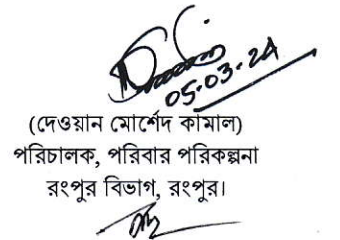 05-03-24
(দেওয়ান মোর্শেদ কামাল)
পরিচালক, পরিবার পরিকল্পনা
রংপুর বিভাগ, রংপুর।